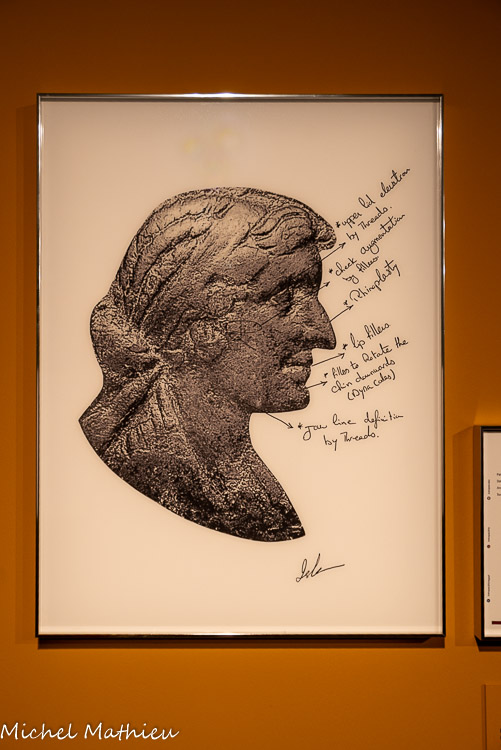 * upper lid elevation
by Threads.
* cheek augmentation
by fillers
* Rhinoplasty
* lip fillers
* filler to Rotate the
chin downwards
* jaw line definition
by Threads.
Michel Mathieu